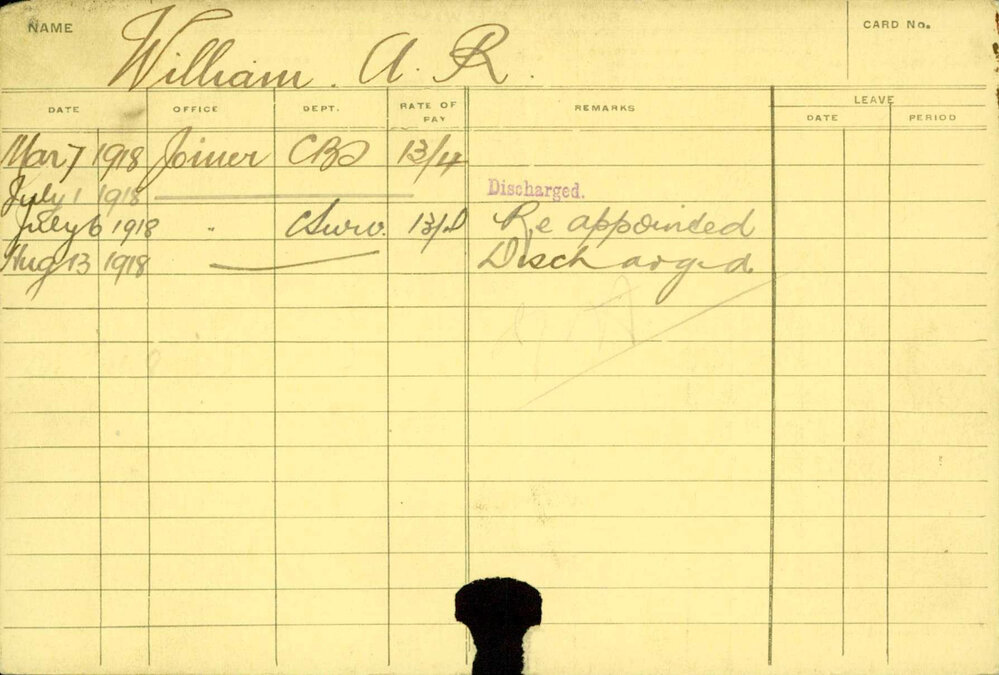 NAME William. A. R. CARD No.
DATE OFFICE DEPT. RATE OF PAY REMARKS LEAVE
DATE PERIOD
Mar 7 1918 Joiner 13/4
July 1 1918 Discharged.
July 6 1918 " Re appointed
Aug 13 1918 Discharged